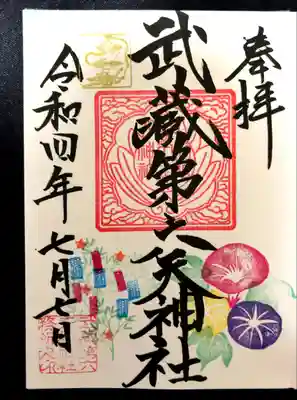 奉拝
武蔵第六天神社
令和四年 七月七日